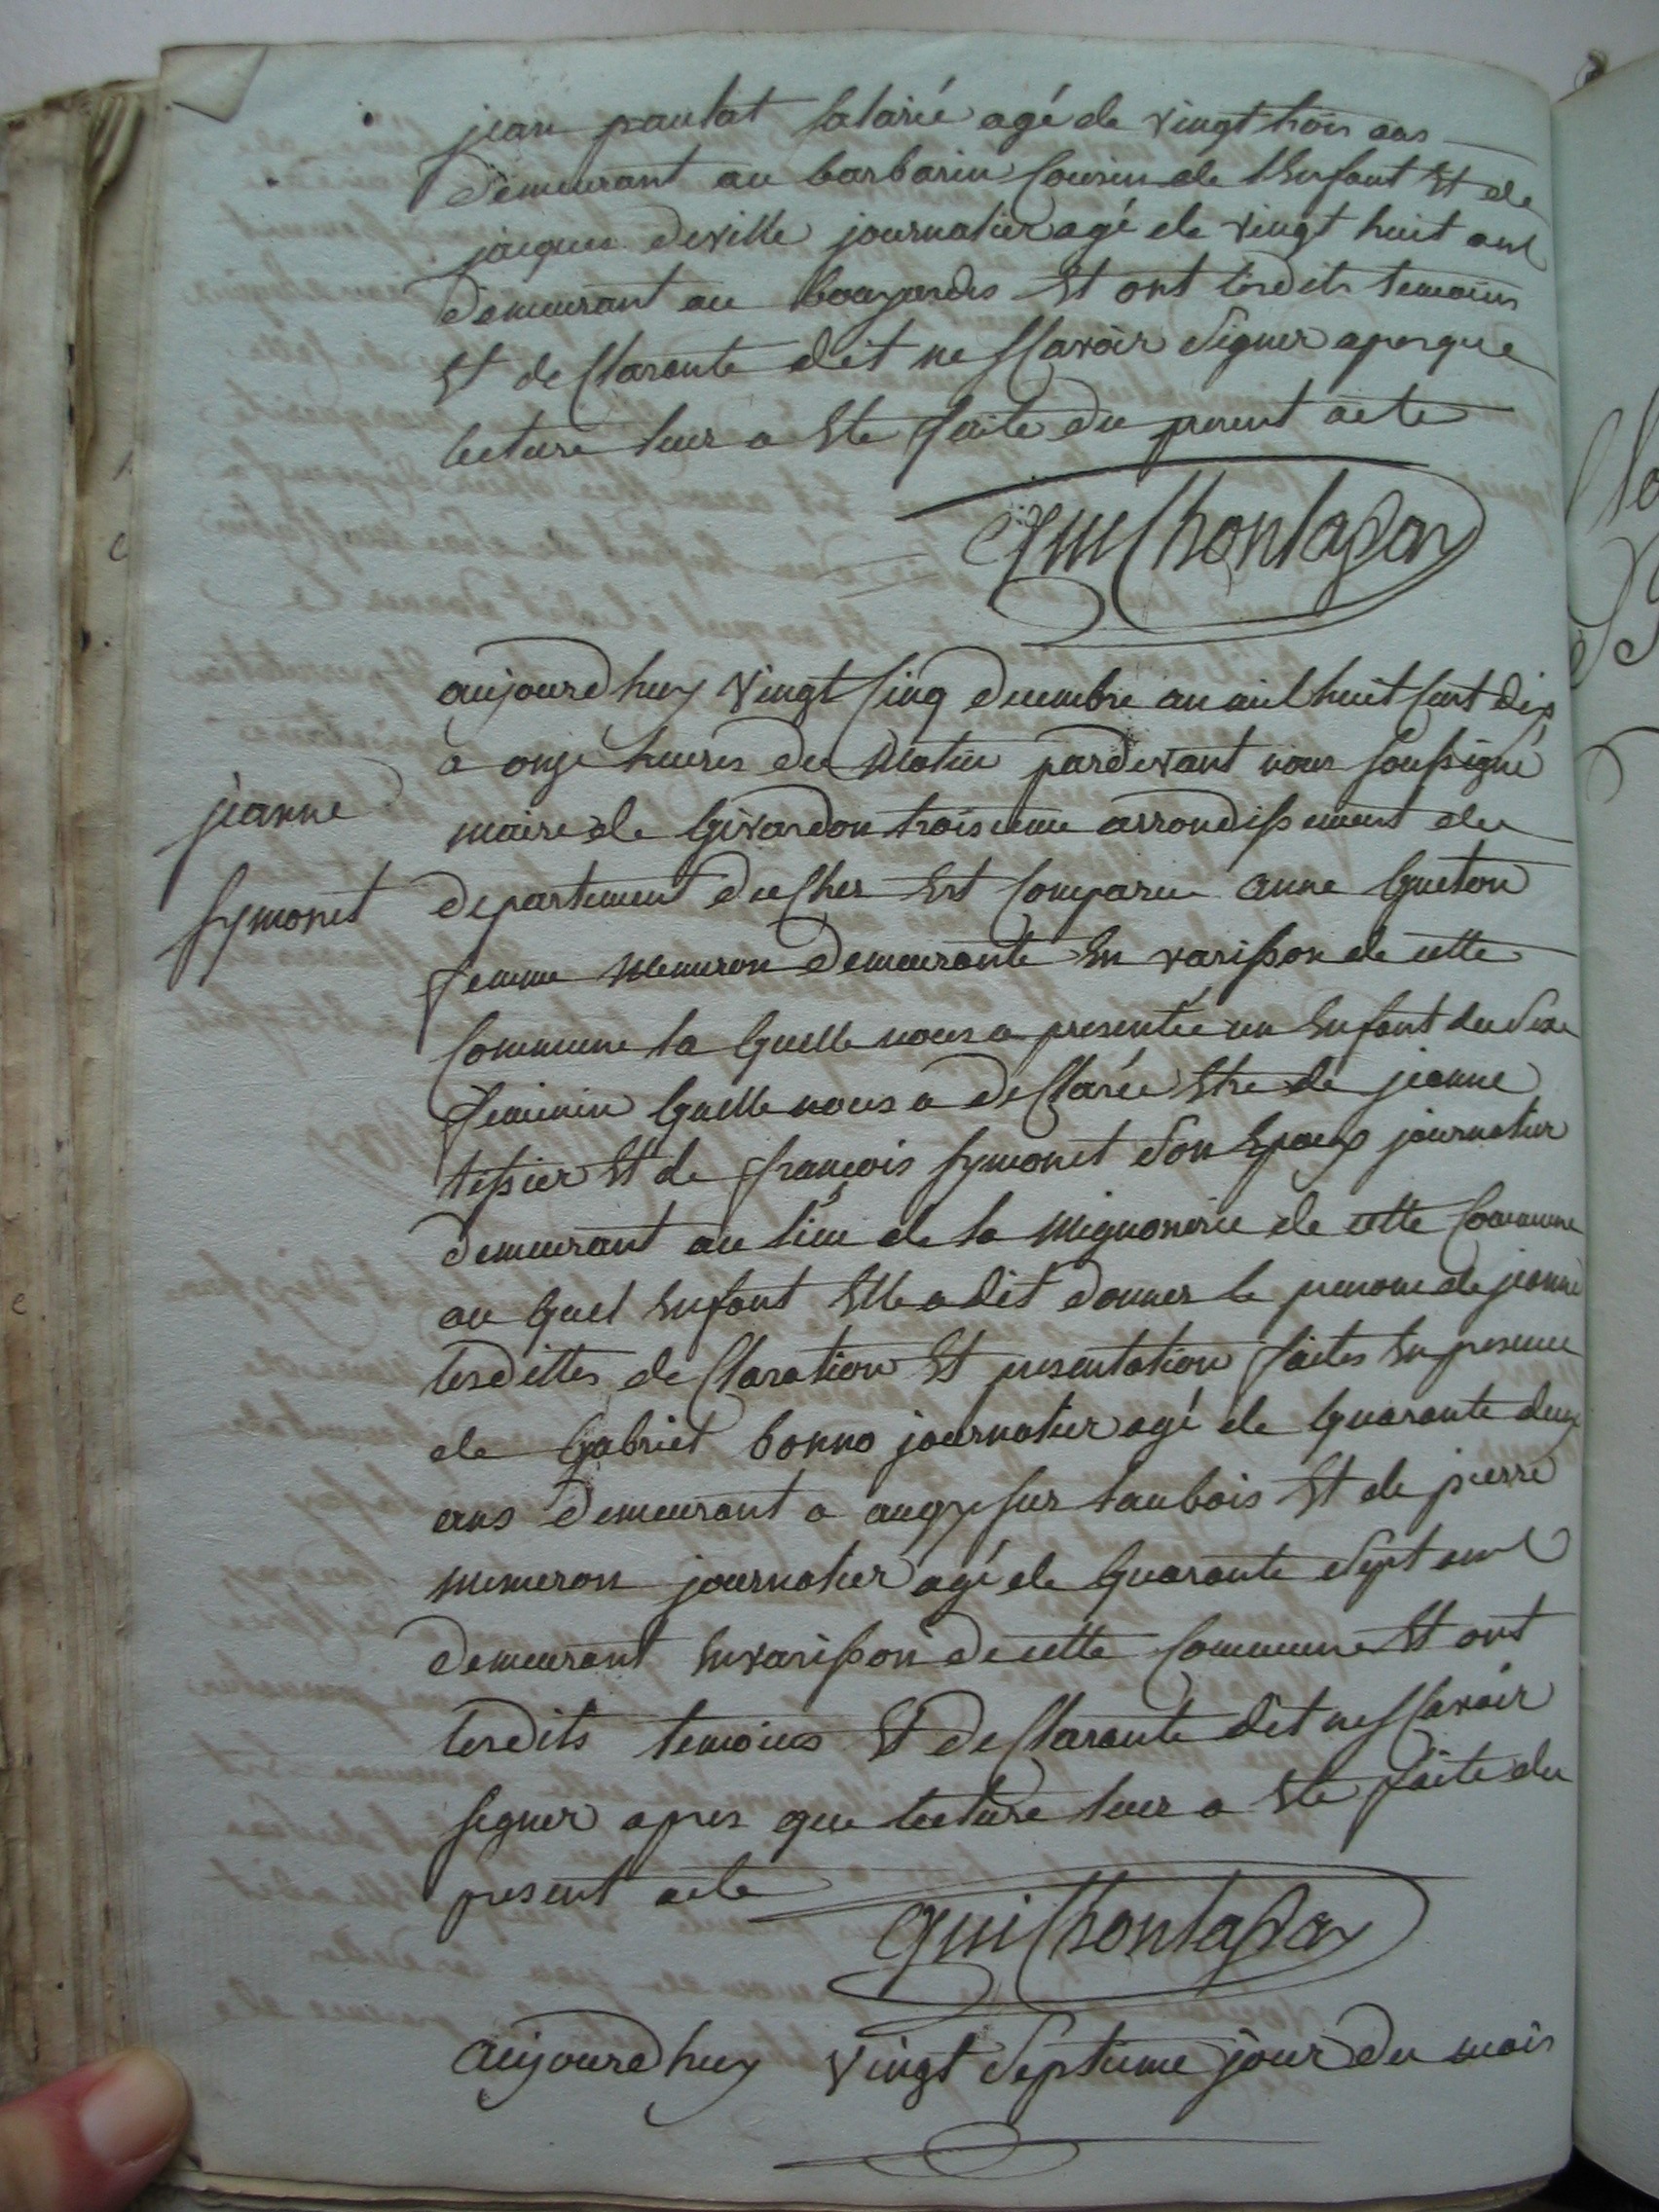 jean pautat salarié agé de vingt trois ans
demeurant au barbarin Cousin de l'Enfant Et de
jacques deville journalier agé de vingt huit ans
demeurant au Et ont lesdits temoins
Et desClarante dit ne sCavoir signer apres que
lecture leur a Ete faite du present acte
guiChonlafay
aujourdhuy vingt Cinq decembre an mil huit Cent dix
a onze heures du Matin pardevant nous soussigné
maire de Givardon troisieme arrondissement du
jeanne
departement du Cher Est Comparu anne Gueton
symonet
femme Memeron demeurante En varisson de cette
Commune la quelle nous a presentée un Enfant du sexe
feminin quelle nous a desClarée Etre de jeanne
tissier Et de françois symonet son Epoux journalier
demeurant au lieu de la Mignonerie de cette Commune
au quel Enfant Elle a dit donner le prenom de jeanne
lesdittes desClaration Et presentation faites En presence
de Gabriel bonno journalier agé de quarante deux
ans demeurant a augy sur laubois Et de pierre
memeron journalier agé de quarante sept ans
demeurant En varisson de cette Commune Et ont
lesdits temoins Et desClarante dit ne sCavoir
signer apres que lecture leur a Ete faite du
present acte
guiChonlafay
aujourdhuy vingt septieme jour du mois